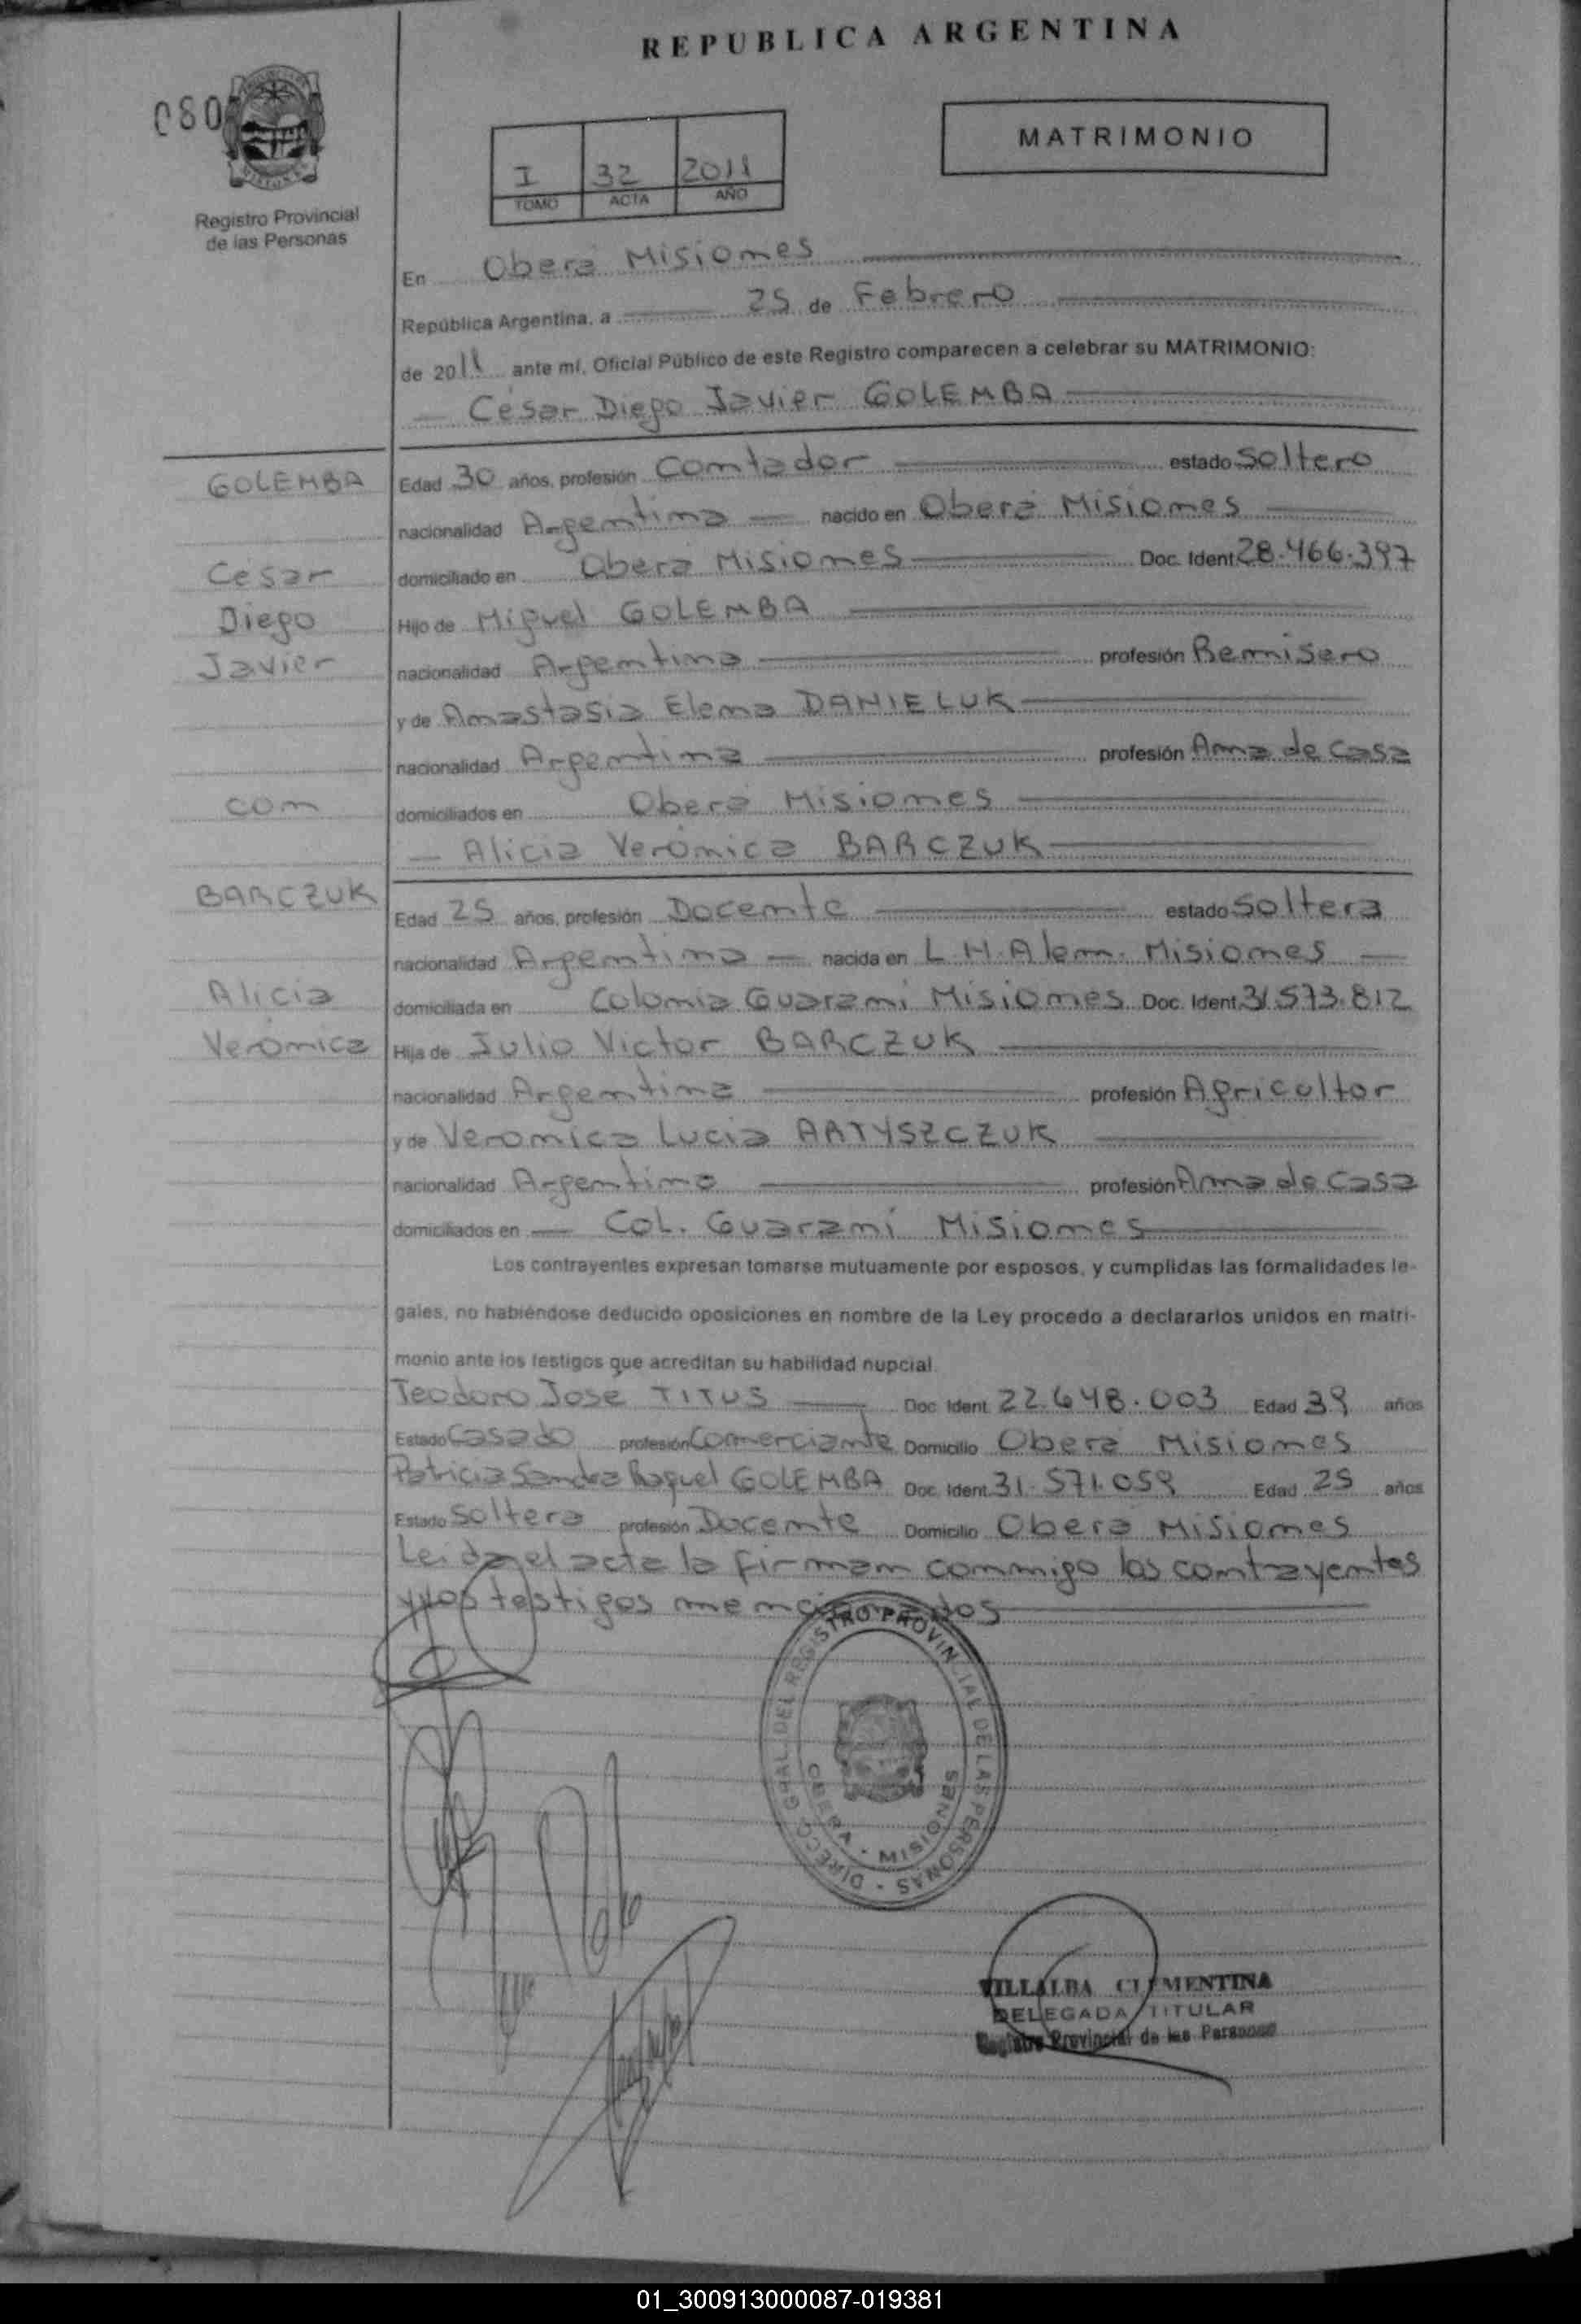 REPUBLICA ARGENTINA
080
MATRIMONIO
I 32 2011
TOMO ACTA AÑO
Registro Provincial
de las Personas
En Oberá Misiones
República Argentina, a 25 de Febrero
de 2011 ante mí, Oficial Público de este Registro comparecen a celebrar su MATRIMONIO:
César Diego Javier GOLEMBA
GOLEMBA
Edad 30 años, profesión Contador estado Soltero
nacionalidad Argentina nacido en Oberá Misiones
César
domiciliado en Oberá Misiones Doc. Ident. 28.466.397
Diego
Hijo de Miguel GOLEMBA
Javier
nacionalidad Argentina profesión Remisero
y de Anastasia Elena DANIELUK
nacionalidad Argentina profesión Ama de Casa
con
domiciliados en Oberá Misiones
Alicia Verónica BARCZUK
BARCZUK
Edad 25 años, profesión Docente estado Soltera
nacionalidad Argentina nacida en L.N.Alem. Misiones
Alicia
domiciliada en Colonia Guaraní Misiones Doc. Ident. 31.573.812
Verónica
Hija de Julio Victor BARCZUK
nacionalidad Argentina profesión Agricultor
y de Veronica Lucia ARTYSZCZUK
nacionalidad Argentina profesión Ama de Casa
domiciliados en Col. Guaraní Misiones
Los contrayentes expresan tomarse mutuamente por esposos, y cumplidas las formalidades le-
gales, no habiéndose deducido oposiciones en nombre de la Ley procedo a declararlos unidos en matri-
monio ante los testigos que acreditan su habilidad nupcial.
Teodoro José TITUS Doc. Ident. 22.648.003 Edad 39 años
Estado Casado profesión Comerciante Domicilio Oberá Misiones
Patricia Sandra Raquel GOLEMBA Doc. Ident. 31.571.059 Edad 25 años
Estado Soltera profesión Docente Domicilio Oberá Misiones
Leida el acta la firman conmigo los contrayentes
y los testigos mencionados
DIRECC. GRAL. DEL REGISTRO PROVINCIAL DE LAS PERSONAS
OBERA - MISIONES
VILLALBA CLEMENTINA
DELEGADA TITULAR
Registro Provincial de las Personas
01_300913000087-019381